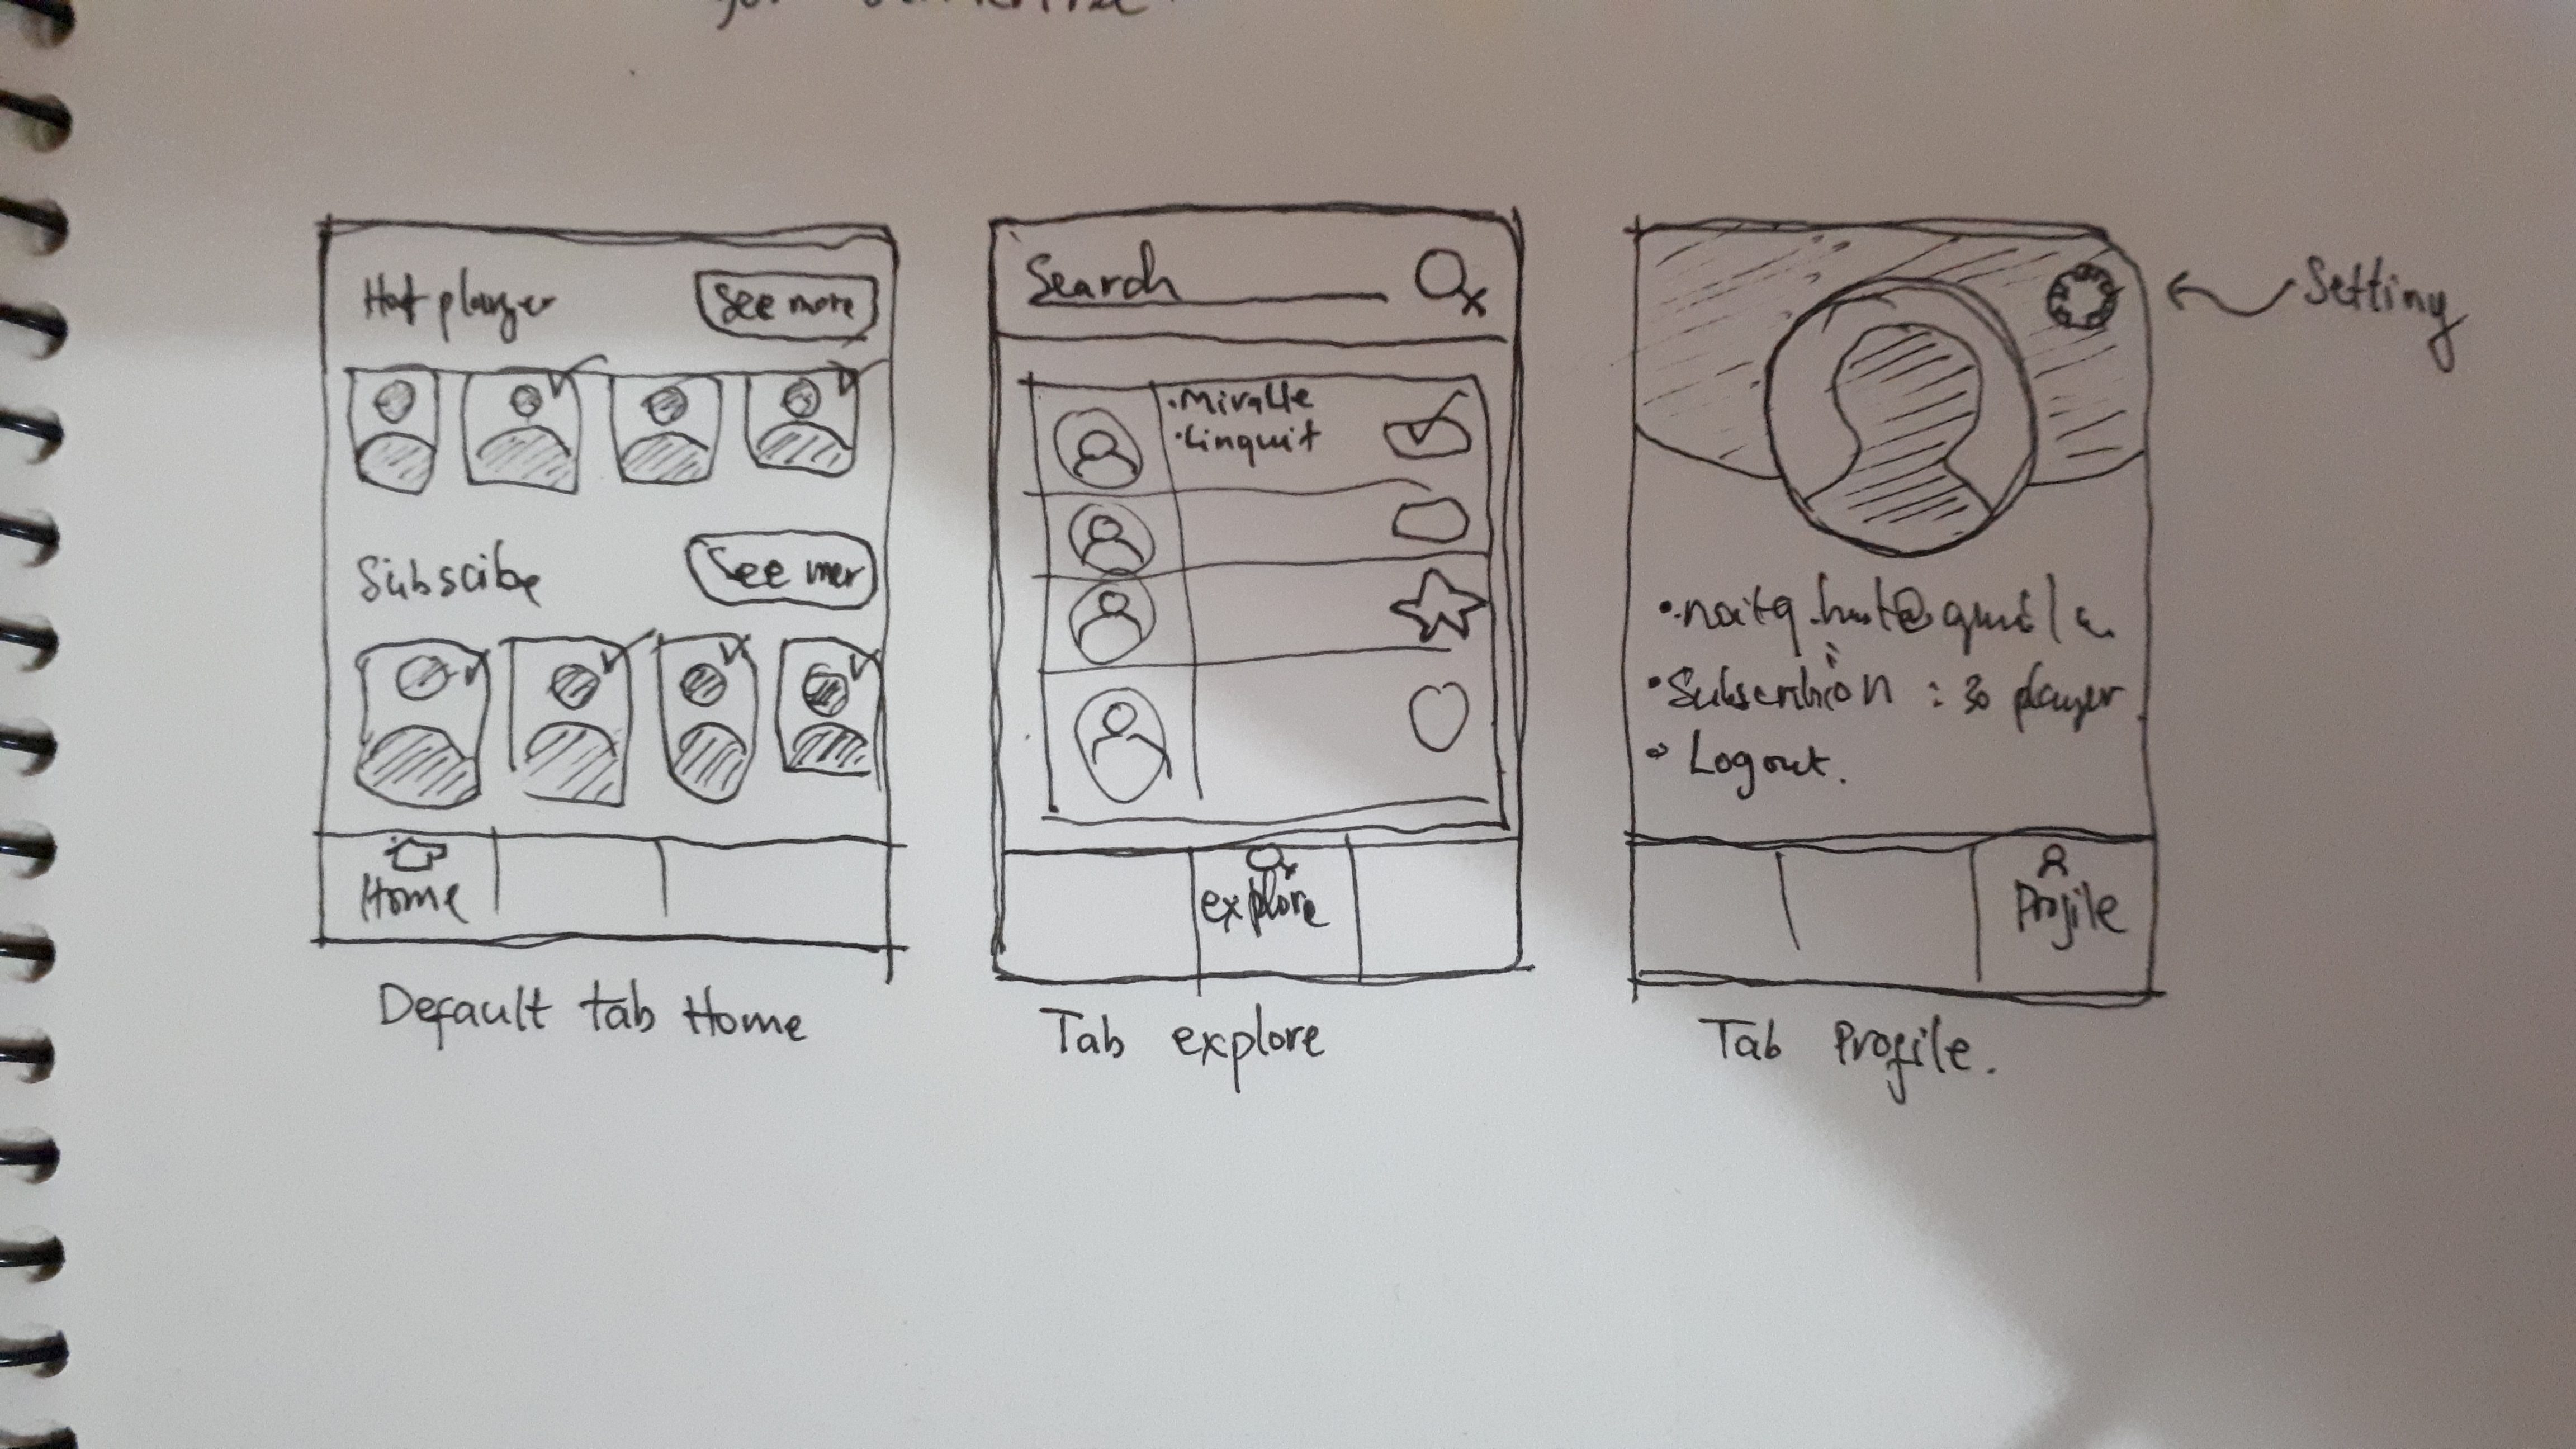 Hot player
See more
Subscibe
See mer
Home
Default tab Home
Search
.Miralle
.Linquit
explore
Tab explore
Setting
: 30 player
Logout.
Profile
Tab Profile.